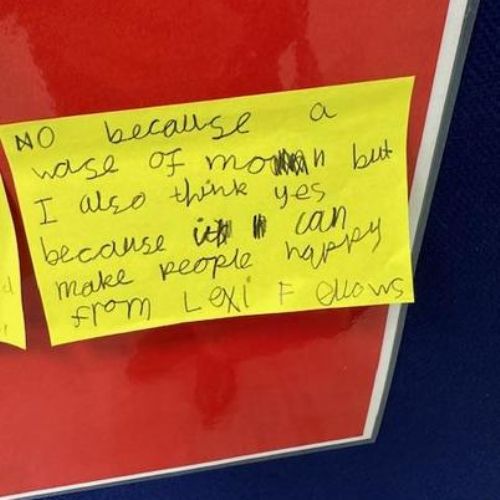 NO because a
wase of but
I also think yes
because can
make people happy
from Lexi Fellows